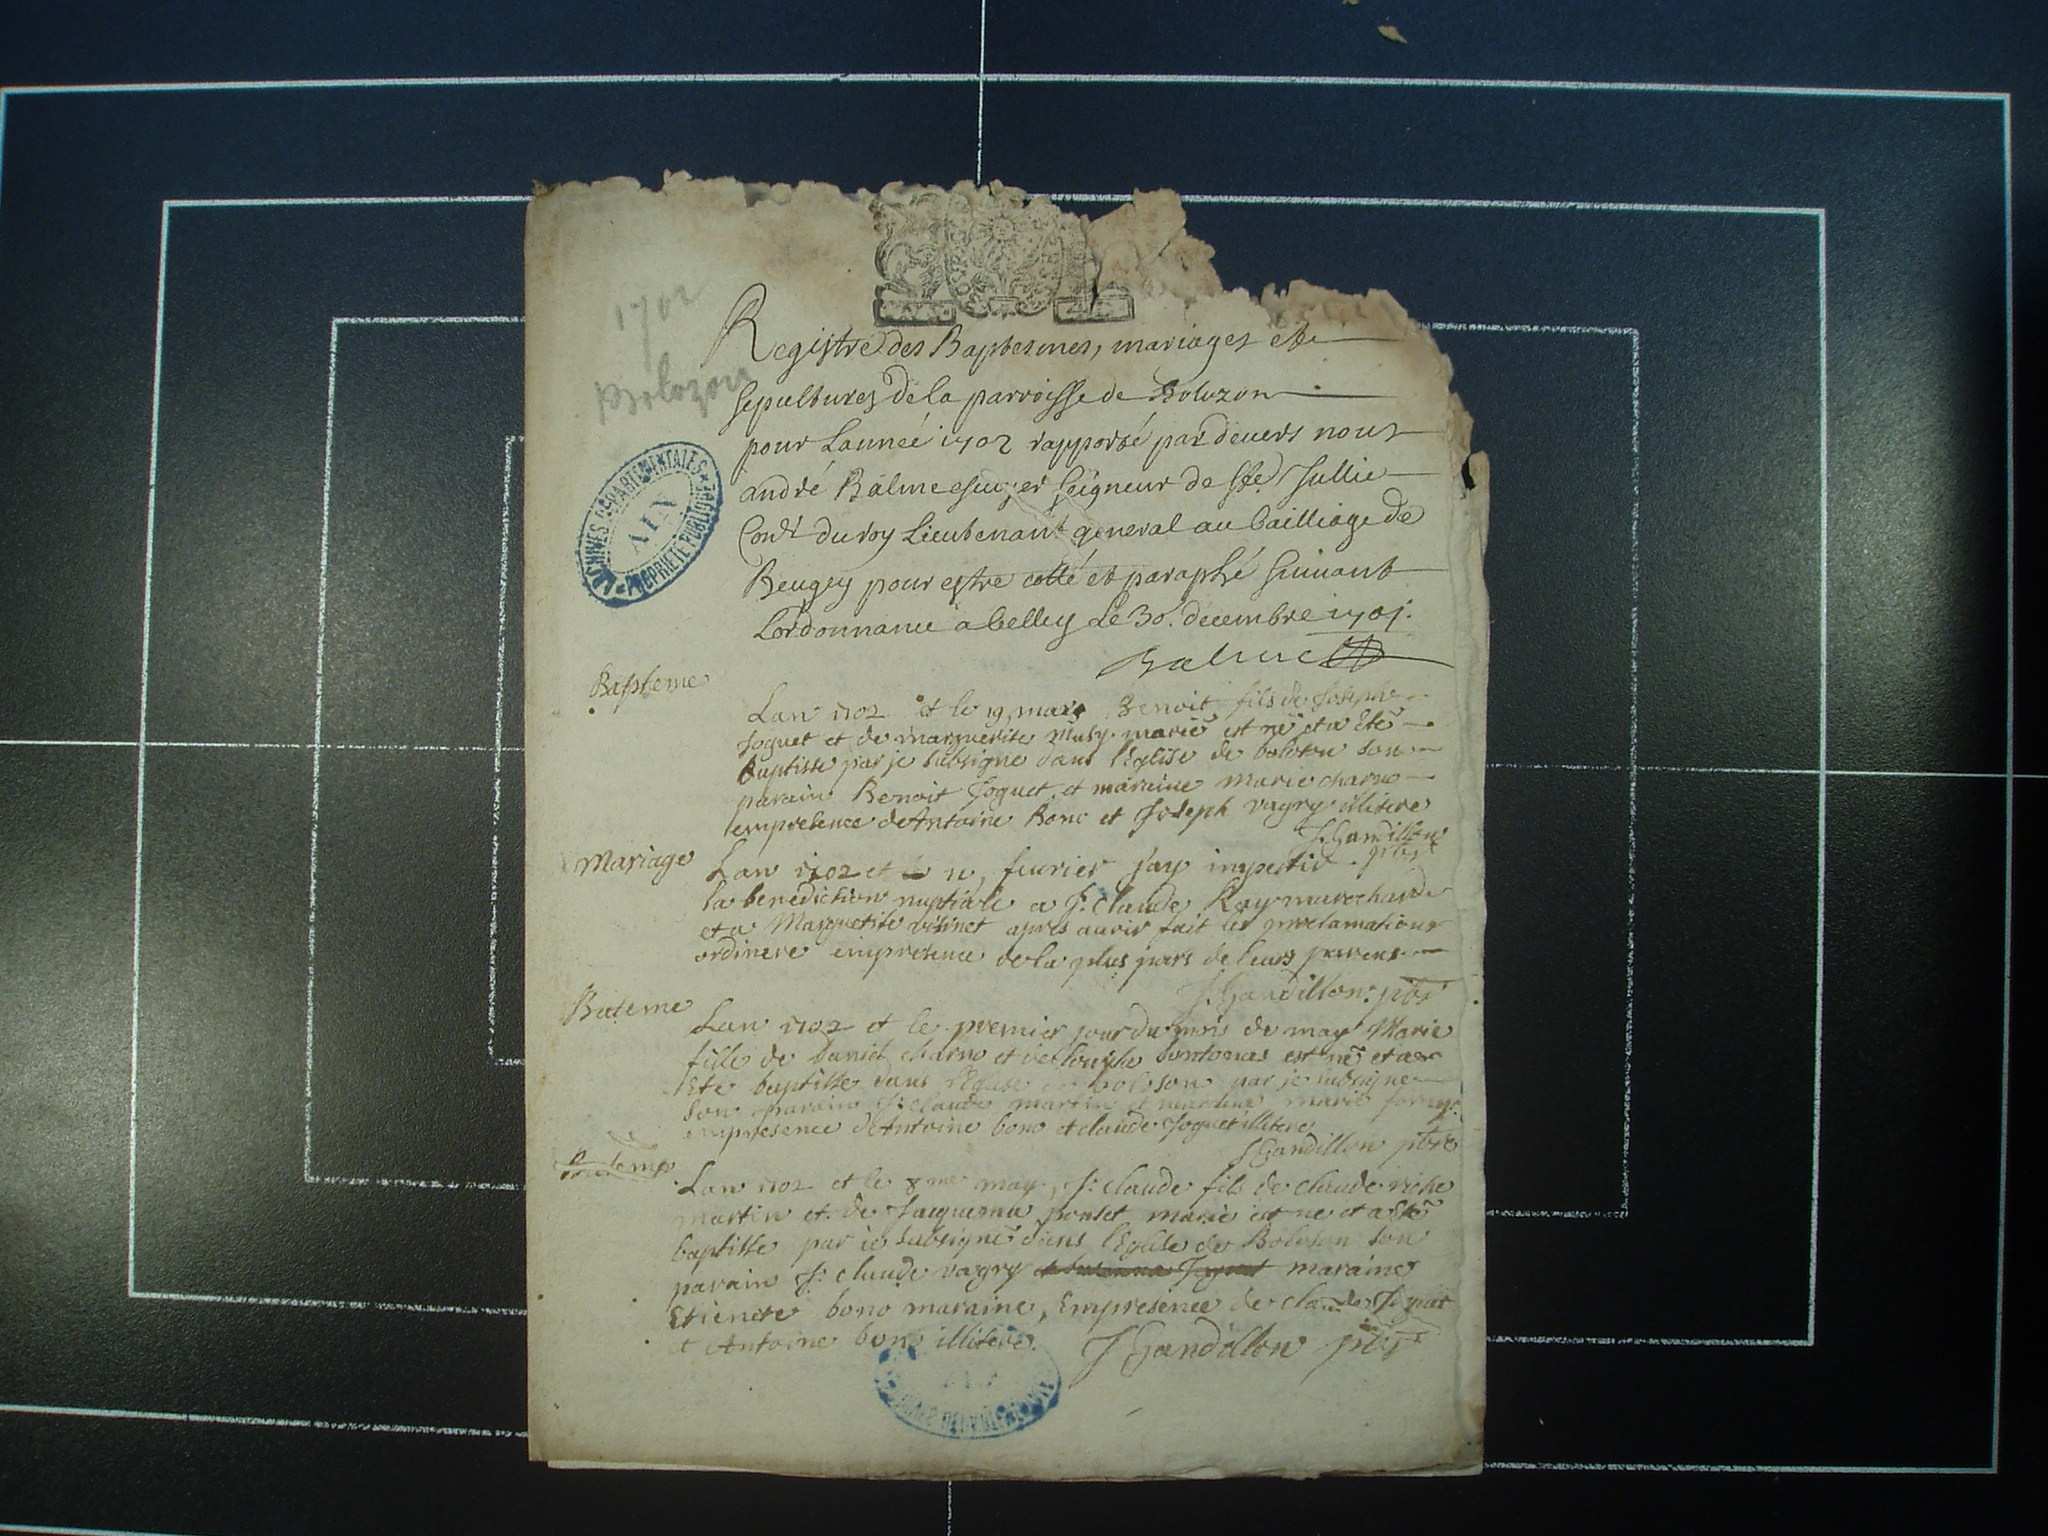 1702
Bolozon
ARCHIVES DEPARTEMENTALES
AIN
PROPRIETE PUBLIQUE
Registre des Baptesmes, mariages et
sepultures de la parroisse de Bolozon
pour Lanneé 1702 rapporté par devers nous
andré Balme escuyer seigneur de Ste Jullie
Conr. du roy Lieutenant general au bailliage de
Beugey pour estre cotté et paraphé suivant
Lordonnance a belley Le 30. decembre 1701.
Balme
Bapteme
Lan 1702 et le 19 mars Benoit fils de Joseph
Joguet et de marguerite marié est né et a Eté
baptisse par je subsigne dans l'Eglise de son
parain Benoit Joguet et maraine Marie charno
empresence de Antoine Bono et Joseph vagry illitere
J Gandillon pbr
Mariage
Lan 1702 et le fevrier Jay imperti
la benediction nuptiale a J: claude Ray marechand
et a apres avoir fait les proclamations
ordinere empresence de la plus pars de leurs parens
J. Gandillon. pbr
Bateme
Lan 1702 et le premier jour du mois de may Marie
fille de Daniel charno et de est né et a
Eté baptisse dans l'Eglise de boloson par je subsigne
son parain J: claude martin et maraine marie
empresence de Antoine bono et claude Joguet illitere
J Gandillon pbre
Lan 1702 et le 8me may, J: claude fils de claude
martin et de Jaquema ponset marié est ne et a Eté
baptisse par je subsigné dans l'Eglise de Boloson son
parain J: claude vagry maraine
Etienete bono maraine, Empresence de claude Joguet
et Antoine bono illitere. J Gandillon pbr